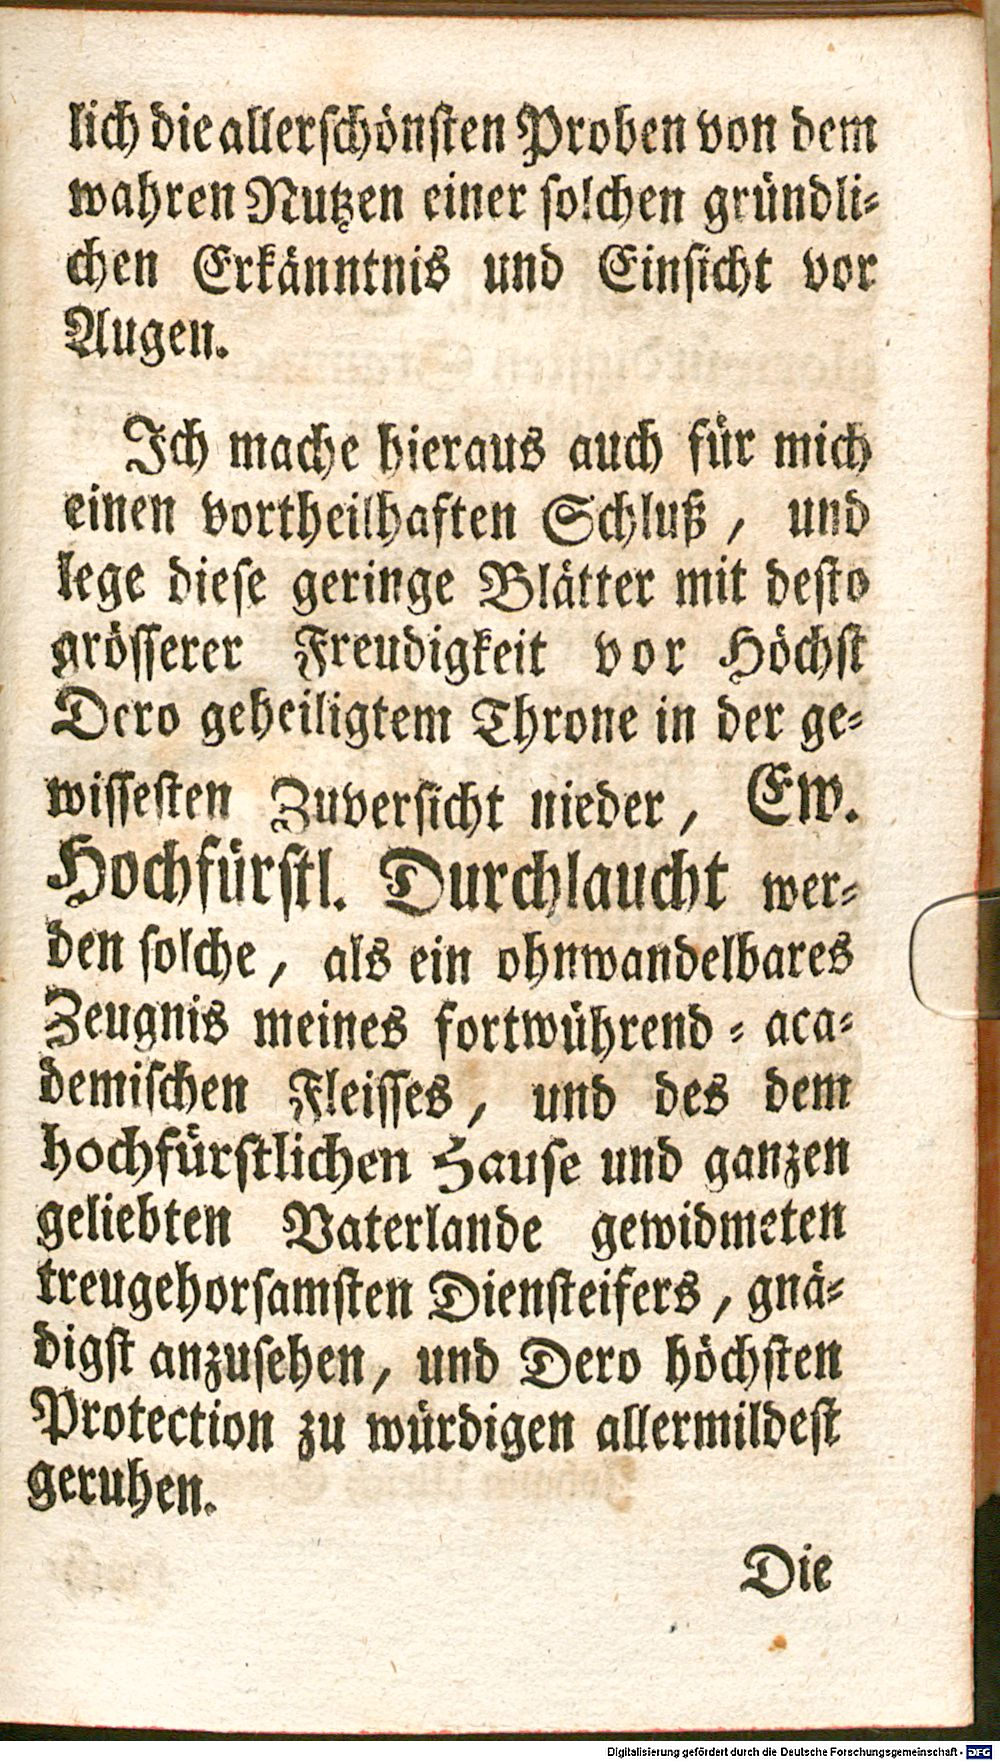 lich die allerschönsten Proben von dem
wahren Nutzen einer solchen gründli-
chen Erkänntnis und Einsicht vor
Augen.
Ich mache hieraus auch für mich
einen vortheilhaften Schluß, und
lege diese geringe Blätter mit desto
grösserer Freudigkeit vor Höchst
Dero geheiligtem Throne in der ge-
wissesten Zuversicht nieder, Ew.
Hochfürstl. Durchlaucht wer-
den solche, als ein ohnwandelbares
Zeugnis meines fortwührend-aca-
demischen Fleisses, und des dem
hochfürstlichen Hause und ganzen
geliebten Vaterlande gewidmeten
treugehorsamsten Diensteifers, gnä-
digst anzusehen, und Dero höchsten
Protection zu würdigen allermildest
geruhen.
Die
Digitalisierung gefördert durch die Deutsche Forschungsgemeinschaft - DFG